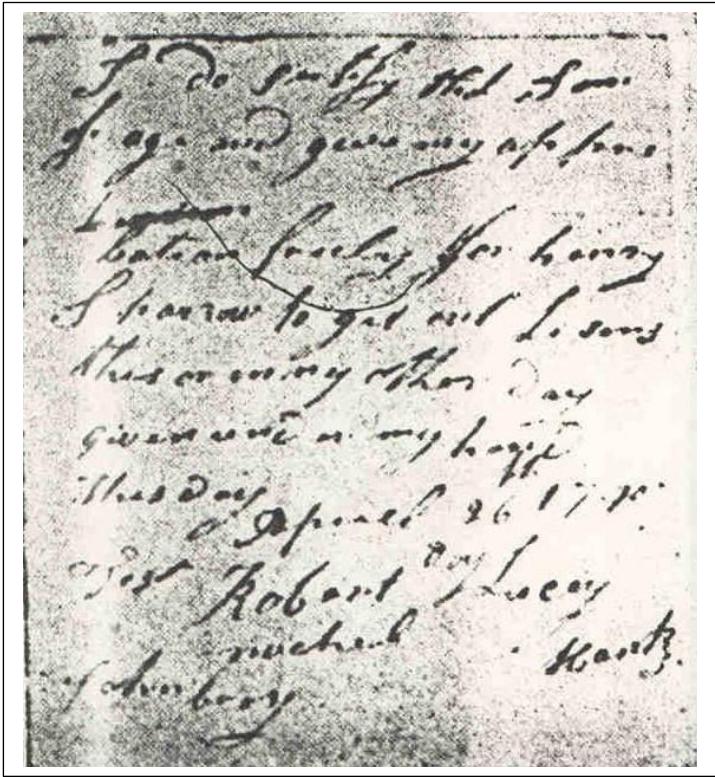 I do sertify that I am
of age and give my
bation freely for henry
Sparrow to git out Lisens
this or meny other day
given und or my hand
this day
of Aprul 26 17
Test Robert Lucey
micheal Hank
John